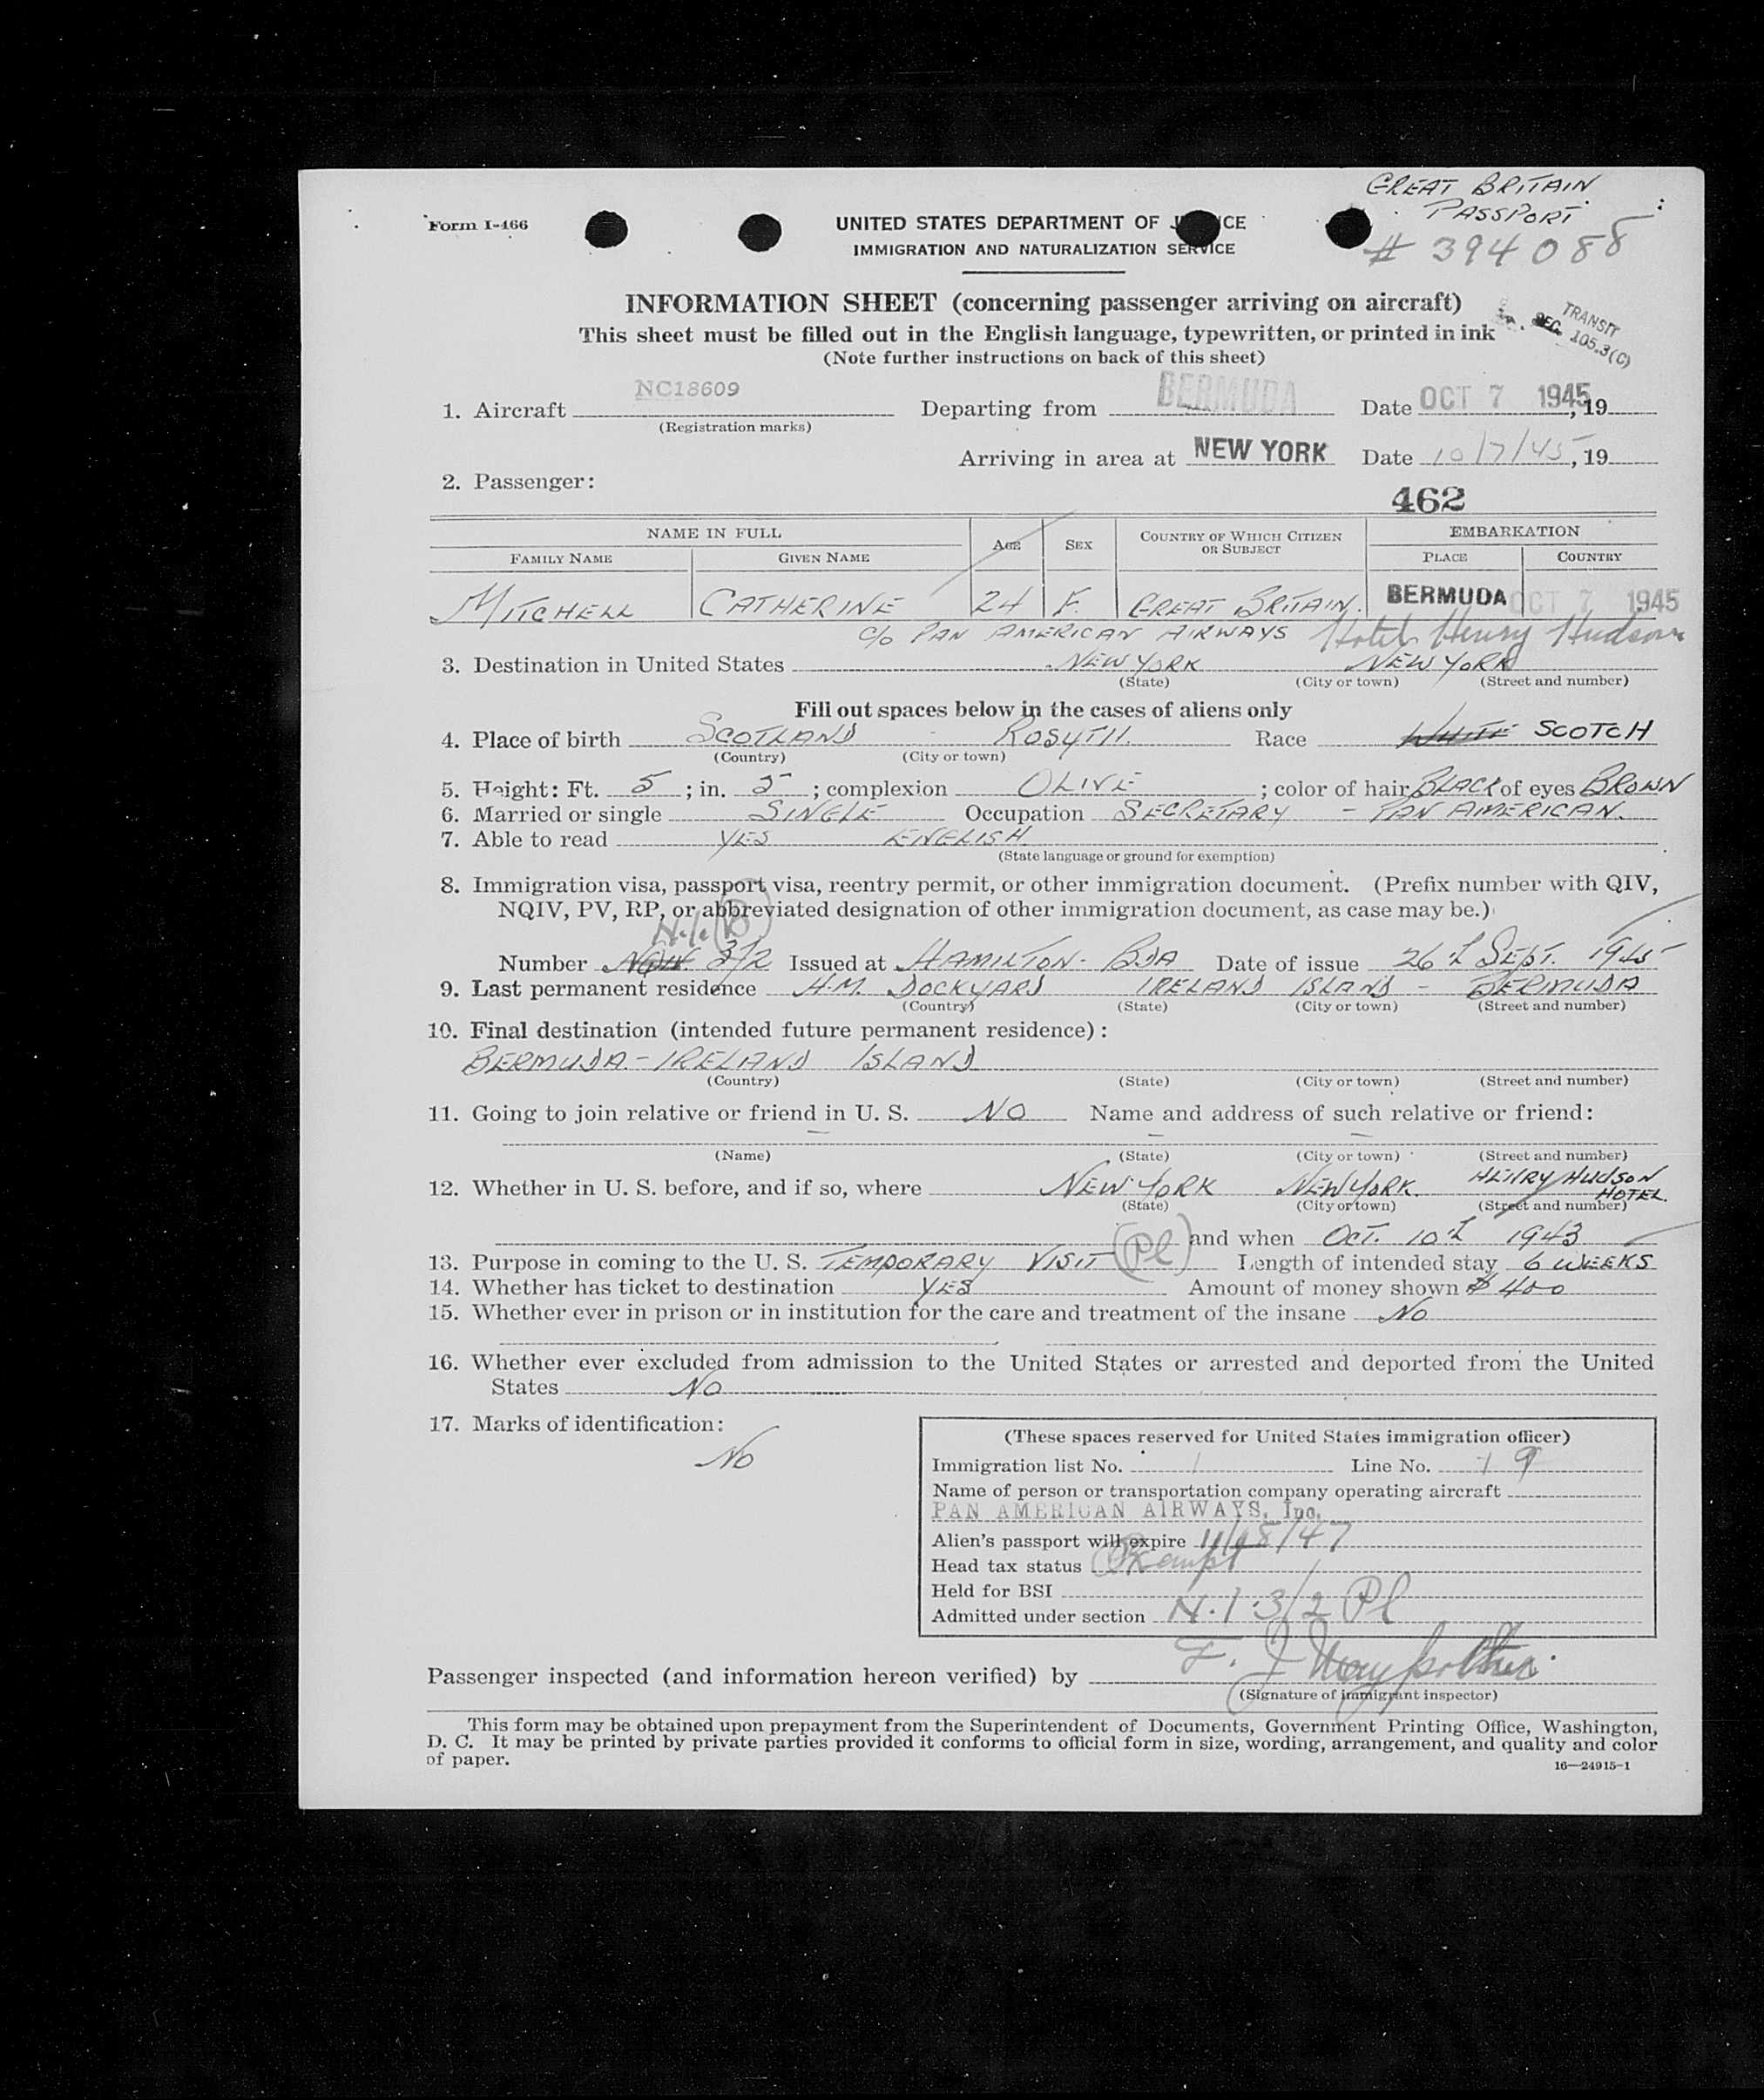 GREAT BRITAIN
PASSPORT
# 394088
Form I-466
UNITED STATES DEPARTMENT OF J ICE
IMMIGRATION AND NATURALIZATION SERVICE
INFORMATION SHEET (concerning passenger arriving on aircraft)
This sheet must be filled out in the English language, typewritten, or printed in ink
(Note further instructions on back of this sheet)
TRANSIT
SEC. 105.3(C)
1. Aircraft NC18609 Departing from BERMUDA Date OCT 7 1945, 19
(Registration marks)
Arriving in area at NEW YORK Date 10/7/45, 19
2. Passenger:
462
NAME IN FULL AGE SEX COUNTRY OF WHICH CITIZEN OR SUBJECT EMBARKATION
FAMILY NAME GIVEN NAME PLACE COUNTRY
MITCHELL CATHERINE 24 F. GREAT BRITAIN. BERMUDA OCT 7 1945
c/o PAN AMERICAN AIRWAYS Hotel Henry Hudson
3. Destination in United States NEW YORK NEW YORK
(State) (City or town) (Street and number)
Fill out spaces below in the cases of aliens only
4. Place of birth SCOTLAND ROSYTH. Race WHITE SCOTCH
(Country) (City or town)
5. Height: Ft. 5 ; in. 5 ; complexion OLIVE ; color of hair BLACK of eyes BROWN
6. Married or single SINGLE Occupation SECRETARY - PAN AMERICAN.
7. Able to read YES ENGLISH.
(State language or ground for exemption)
8. Immigration visa, passport visa, reentry permit, or other immigration document. (Prefix number with QIV,
NQIV, PV, RP, or abbreviated designation of other immigration document, as case may be.)
N.I. (B)
Number NQIV. 3/2 Issued at HAMILTON - BDA Date of issue 26th SEPT. 1945
9. Last permanent residence H.M. DOCKYARD IRELAND ISLAND - BERMUDA
(Country) (State) (City or town) (Street and number)
10. Final destination (intended future permanent residence):
BERMUDA - IRELAND ISLAND
(Country) (State) (City or town) (Street and number)
11. Going to join relative or friend in U. S. NO Name and address of such relative or friend:
(Name) (State) (City or town) (Street and number)
12. Whether in U. S. before, and if so, where NEW YORK NEW YORK. HENRY HUDSON HOTEL.
(State) (City or town) (Street and number)
and when OCT. 10th 1943
13. Purpose in coming to the U. S. TEMPORARY VISIT (Pl) Length of intended stay 6 WEEKS
14. Whether has ticket to destination YES Amount of money shown $ 400
15. Whether ever in prison or in institution for the care and treatment of the insane NO
16. Whether ever excluded from admission to the United States or arrested and deported from the United
States NO
17. Marks of identification:
NO
(These spaces reserved for United States immigration officer)
Immigration list No. 1 Line No. 9
Name of person or transportation company operating aircraft
PAN AMERICAN AIRWAYS, Inc.
Alien's passport will expire 11/ /47
Head tax status Exempt
Held for BSI
Admitted under section N.I. 3/2 Pl
F. J.
Passenger inspected (and information hereon verified) by
(Signature of immigrant inspector)
This form may be obtained upon prepayment from the Superintendent of Documents, Government Printing Office, Washington,
D. C. It may be printed by private parties provided it conforms to official form in size, wording, arrangement, and quality and color
of paper.
16—24915-1